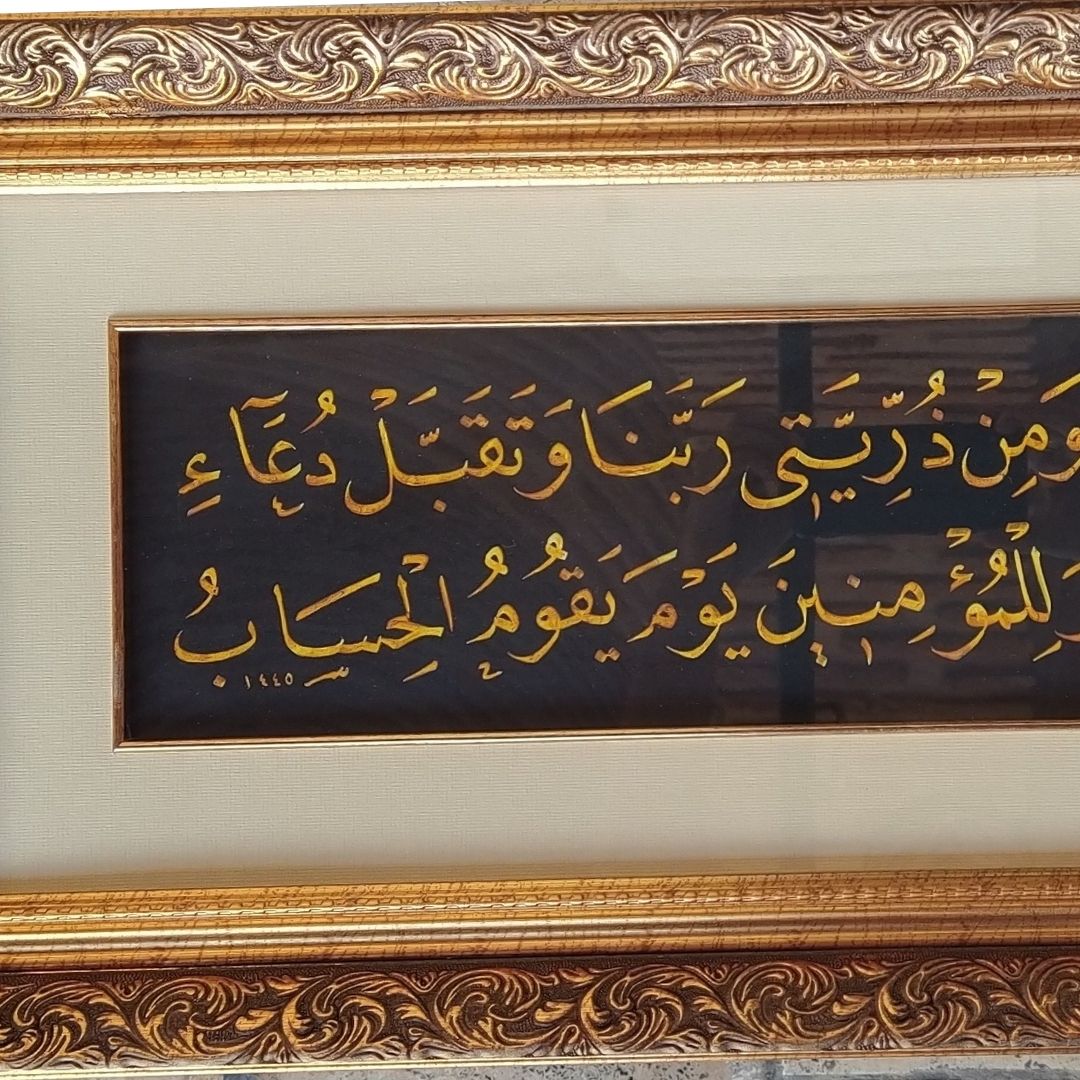 وَمِنْ ذُرِّيَّتى رَبَّنَا وَتَقَبَّلْ دُعَآءِ
لِلْمُؤْمِنينَ يَوْمَ يَقُومُ الْحِسَابُ
١٤٤٥